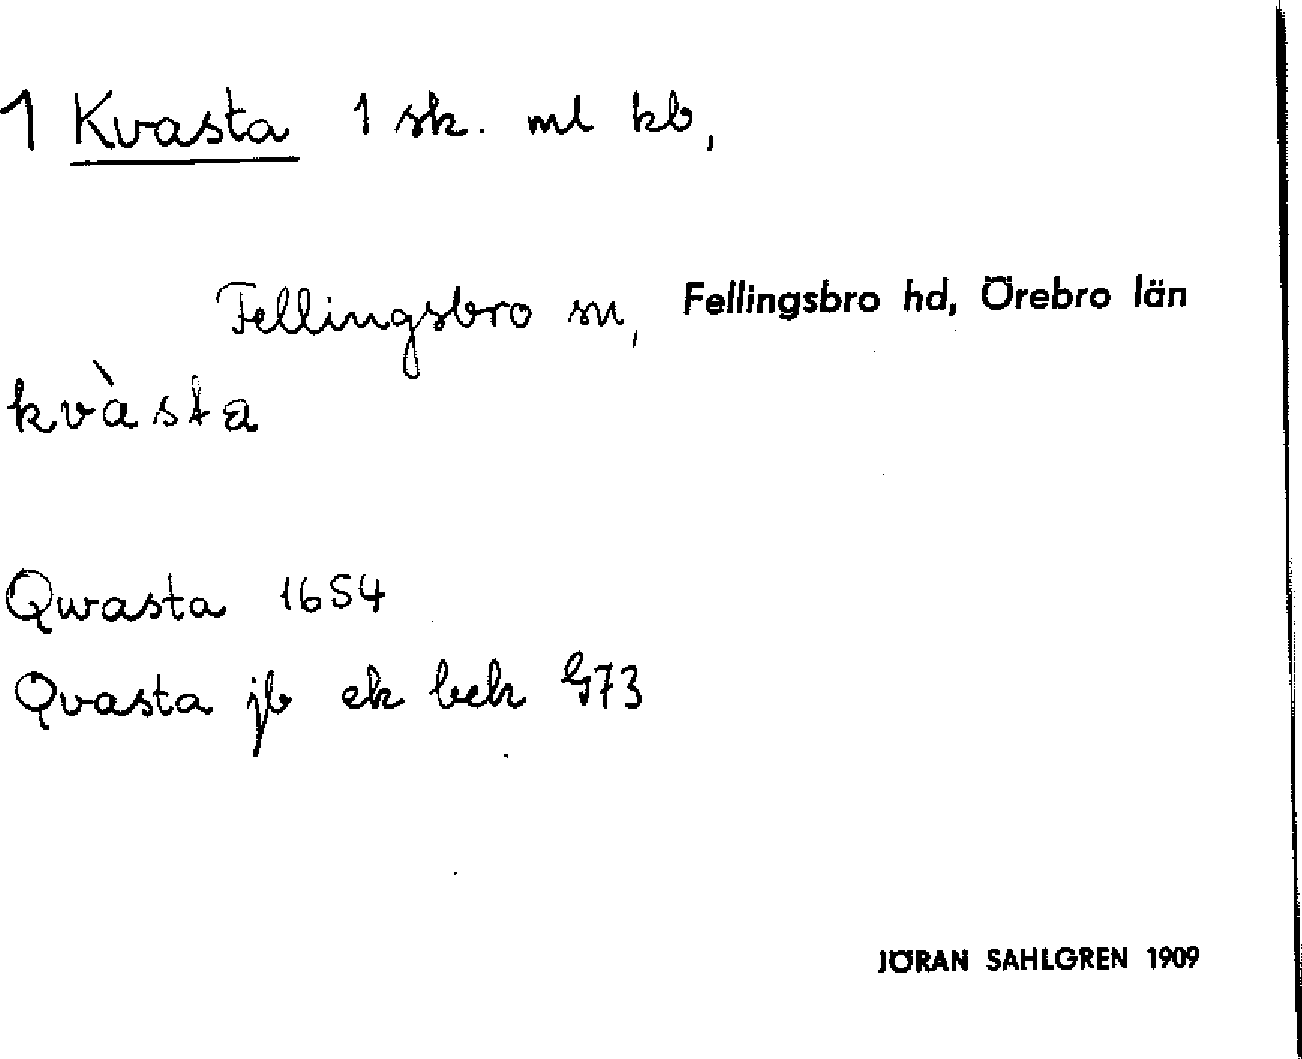 1 Kvasta 1 sk. ml kb,
Fellingsbro sn, Fellingsbro hd, Örebro län
kvàsta
Qwasta 1654
Qvasta jb ek bek G73
JÖRAN SAHLGREN 1909